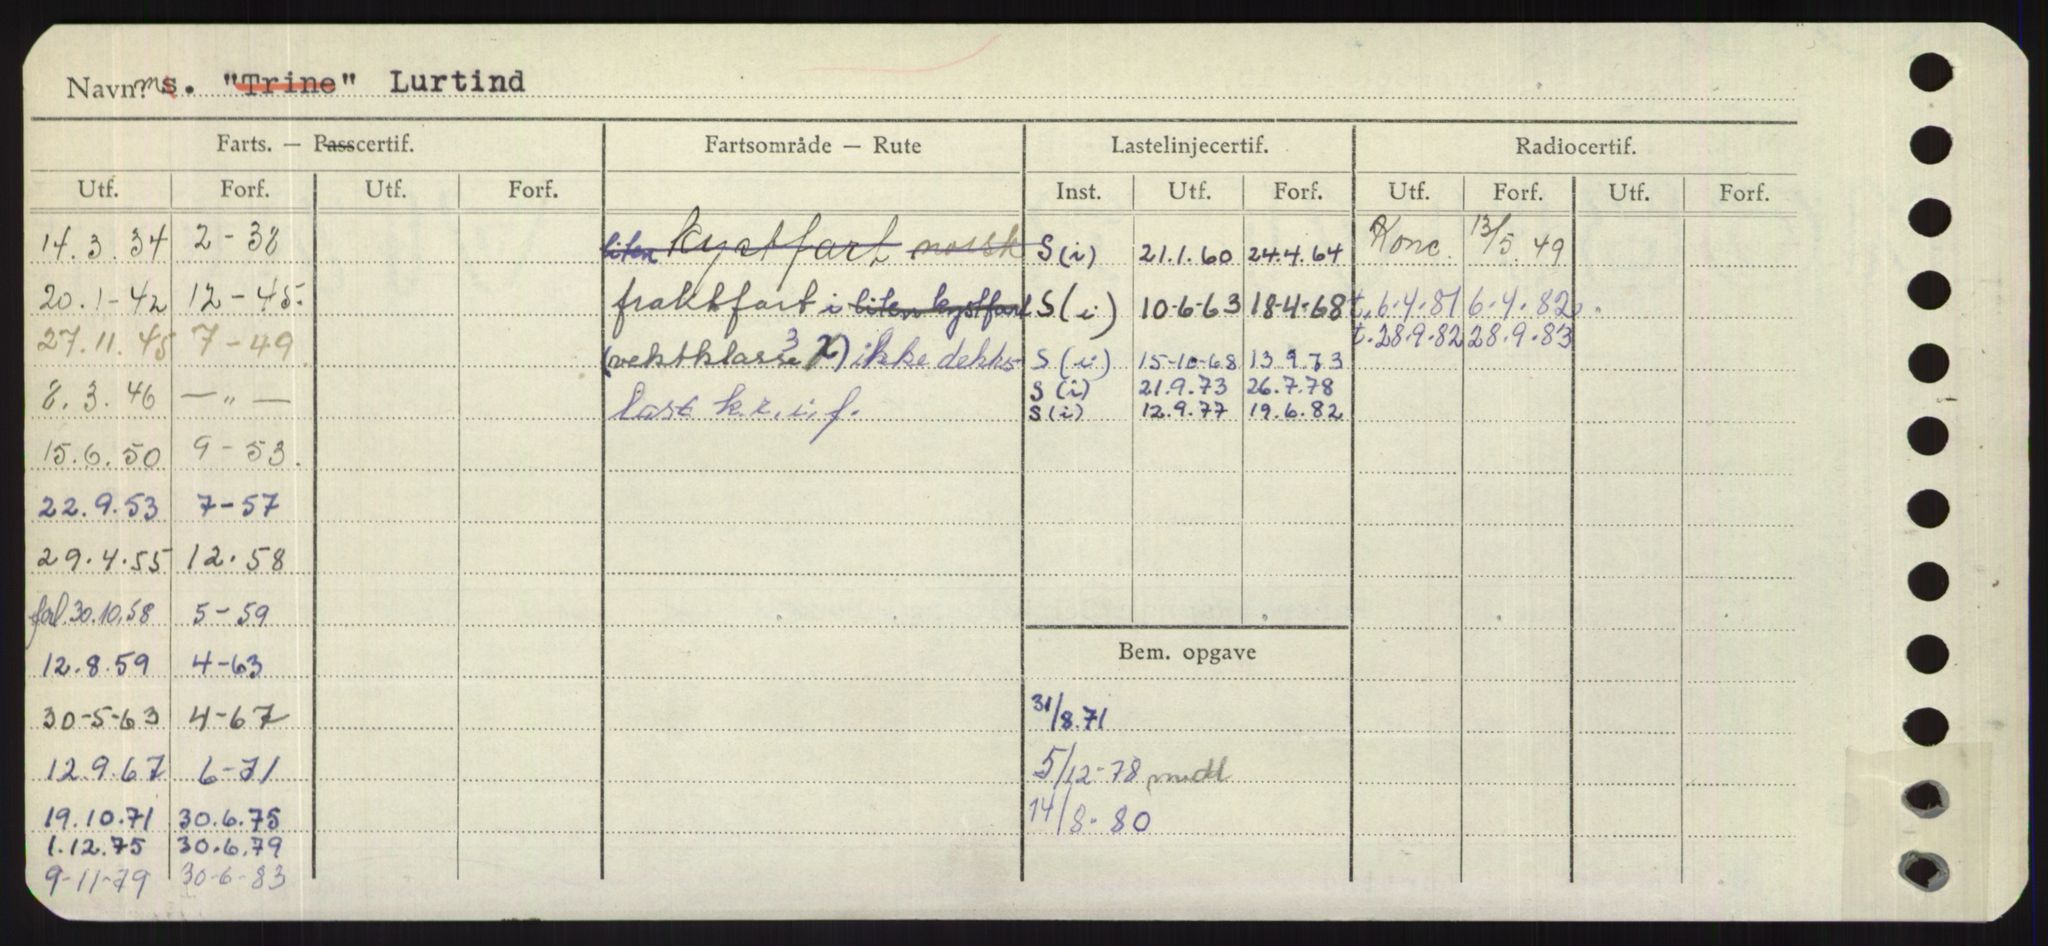 Navn: ms. "Trine" Lurtind
Farts. — Passcertif. Fartsområde — Rute Lastelinjecertif. Radiocertif.
Utf. Forf. Utf. Forf. Inst. Utf. Forf. Utf. Forf. Utf. Forf.
14.3.34 2-38 liten kystfart norsk S(i) 21.1.60 24.4.64 Konc. 13/5.49
20.1-42 12-45. fraktfart i liten kystfart S(i) 10-6-63 18-4-68 t.6.4.81 6-4.82
t.28.9.82 28.9.83
27.11.45 7-49 (vektklasse 3 2) ikke dekks- S(i) 15-10-68 13.9.73
S(i) 21.9.73 26.7.78
8.3.46 —"— last k.r.i.f. S(i) 12.9.77 19.6.82
15.6.50 9-53.
22.9.53 7-57
29.4.55 12.58
forl. 30.10.58 5-59
Bem. opgave
12.8.59 4-63
30-5-63 4-67 31/8.71
12.9.67 6-71 5/12-78
19.10.71 30.6.75 14/8.80
1.12.75 30.6.79
9-11-79 30-6-83